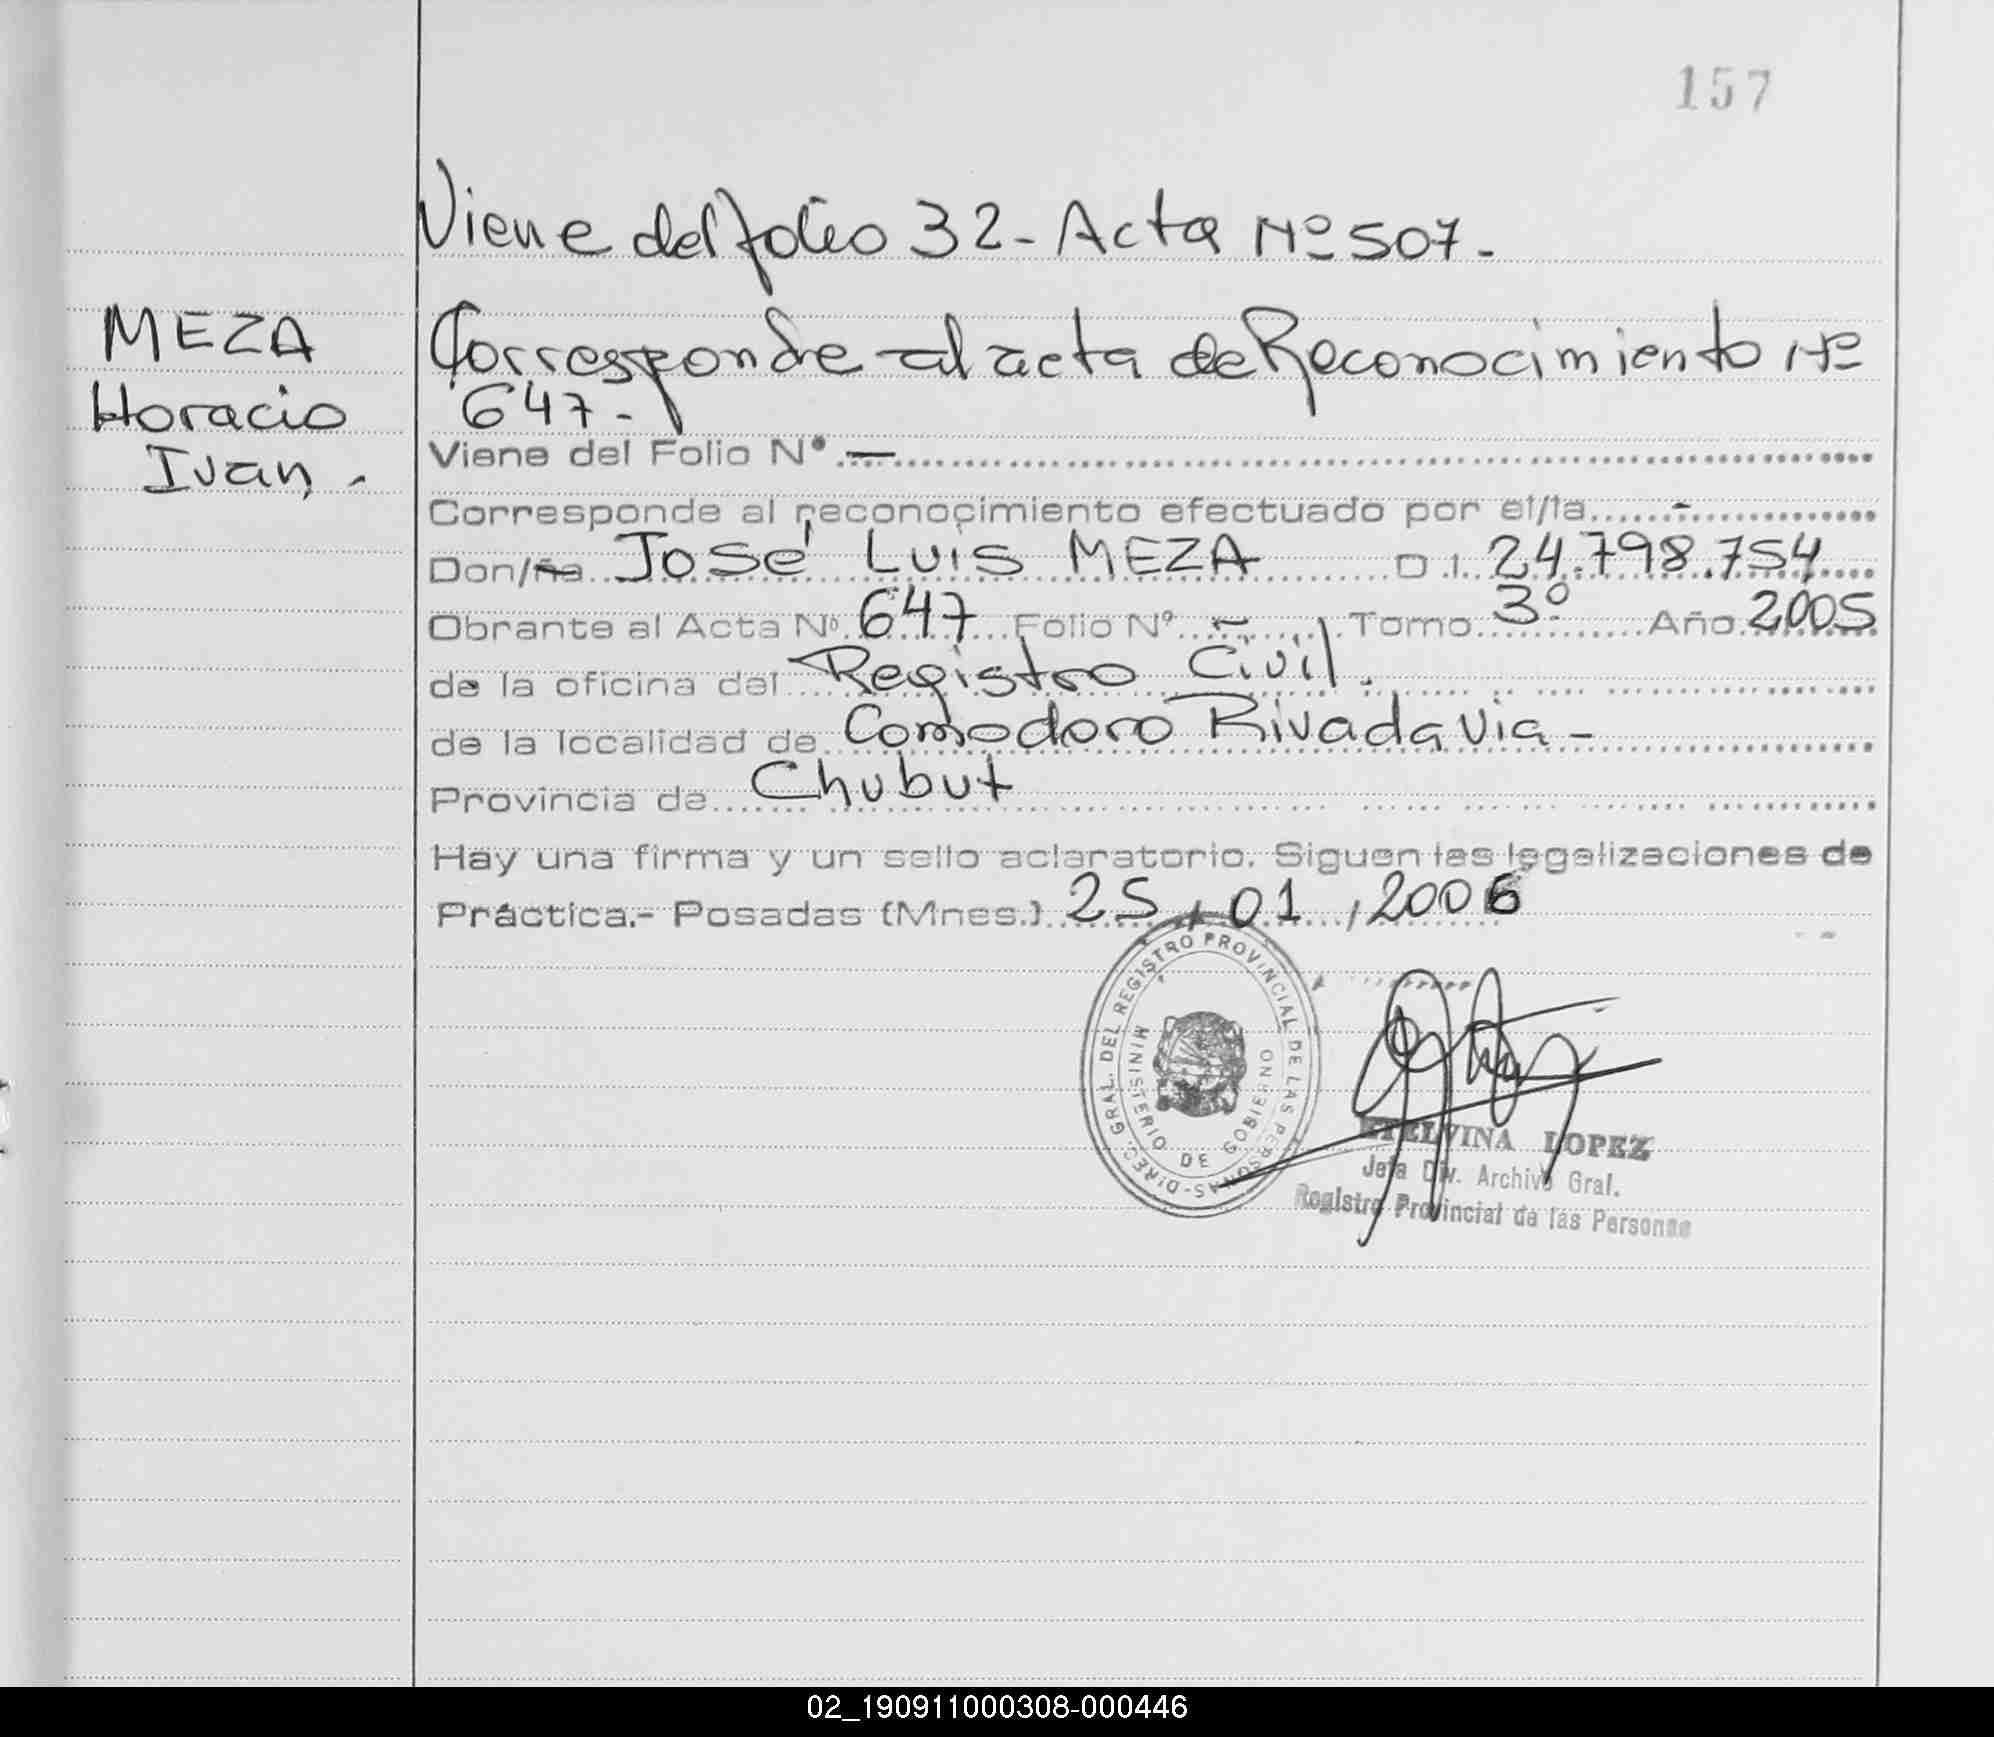 157
Viene del folio 32 - Acta Nº 507 -
MEZA
Horacio
Ivan, -
Corresponde al acta de Reconocimiento Nº
647 -
Viene del Folio Nº —
Corresponde al reconocimiento efectuado por el/la -
Don/ña José Luis MEZA D.I. 24.798.754
Obrante al Acta Nº 647 Folio Nº - Tomo 3º Año 2005
de la oficina del Registro Civil.
de la localidad de Comodoro Rivadavia -
Provincia de Chubut
Hay una firma y un sello aclaratorio. Siguen las legalizaciones de
Práctica.- Posadas (Mnes.) 25 / 01 / 2006
DIREC. GRAL. DEL REGISTRO PROVINCIAL DE LAS PERSONAS-
MINISTERIO DE GOBIERNO
ETELVINA LOPEZ
Jefa Div. Archivo Gral.
Registro Provincial de las Personas
02_190911000308-000446